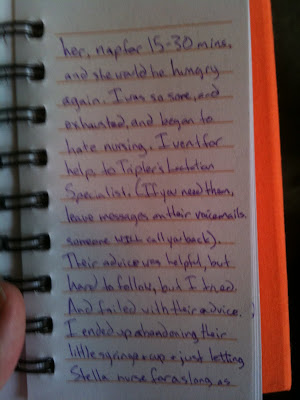 her, nap for 15-30 mins,
and she would be hungry
again. I was so sore, and
exhausted, and began to
hate nursing. I went for
help to Tripler's Lactation
Specialist. (If you need them,
leave messages on their voicemails.
someone will call you back).
Their advice was helpful, but
hard to follow, but I tried.
And failed with their advice.
I ended up abandoning their
little syringe + cup + just letting
Stella nurse for as long as